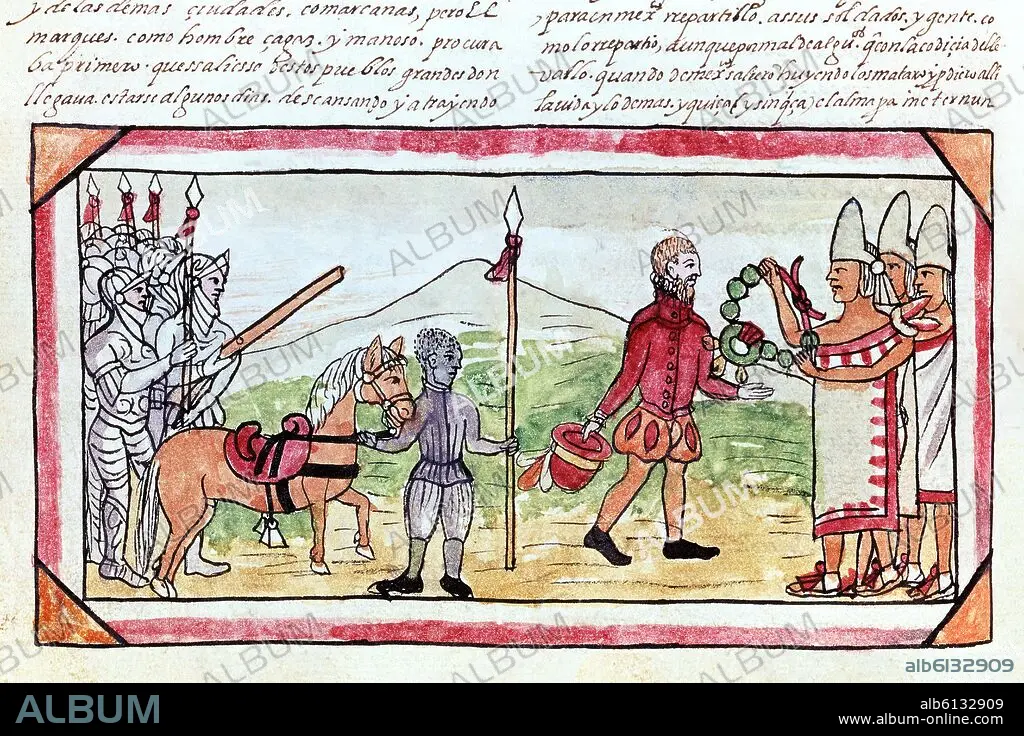 y delas demas çiudades. comarcanas, pero El
marques. como hombre çagaz. y mañoso, procura
ba primero. que ssaliesse destos pueblos grandes don
llegava. estarse algunos dias. descansando y atrayendo
para en mexº rrepartillo. assus soldados. y gente. co
molo rrepartio, aunque pa mal de algus. qe con la codiçia de lle
vallo. quando de mexº saliero huyendo los mataro y pdiero alli
la vida y lo demas. y quiça (y sin qça) el alma pa in eternun
ALBUM
alb6132909
ALBUM
alb6132909
www.album-online.com